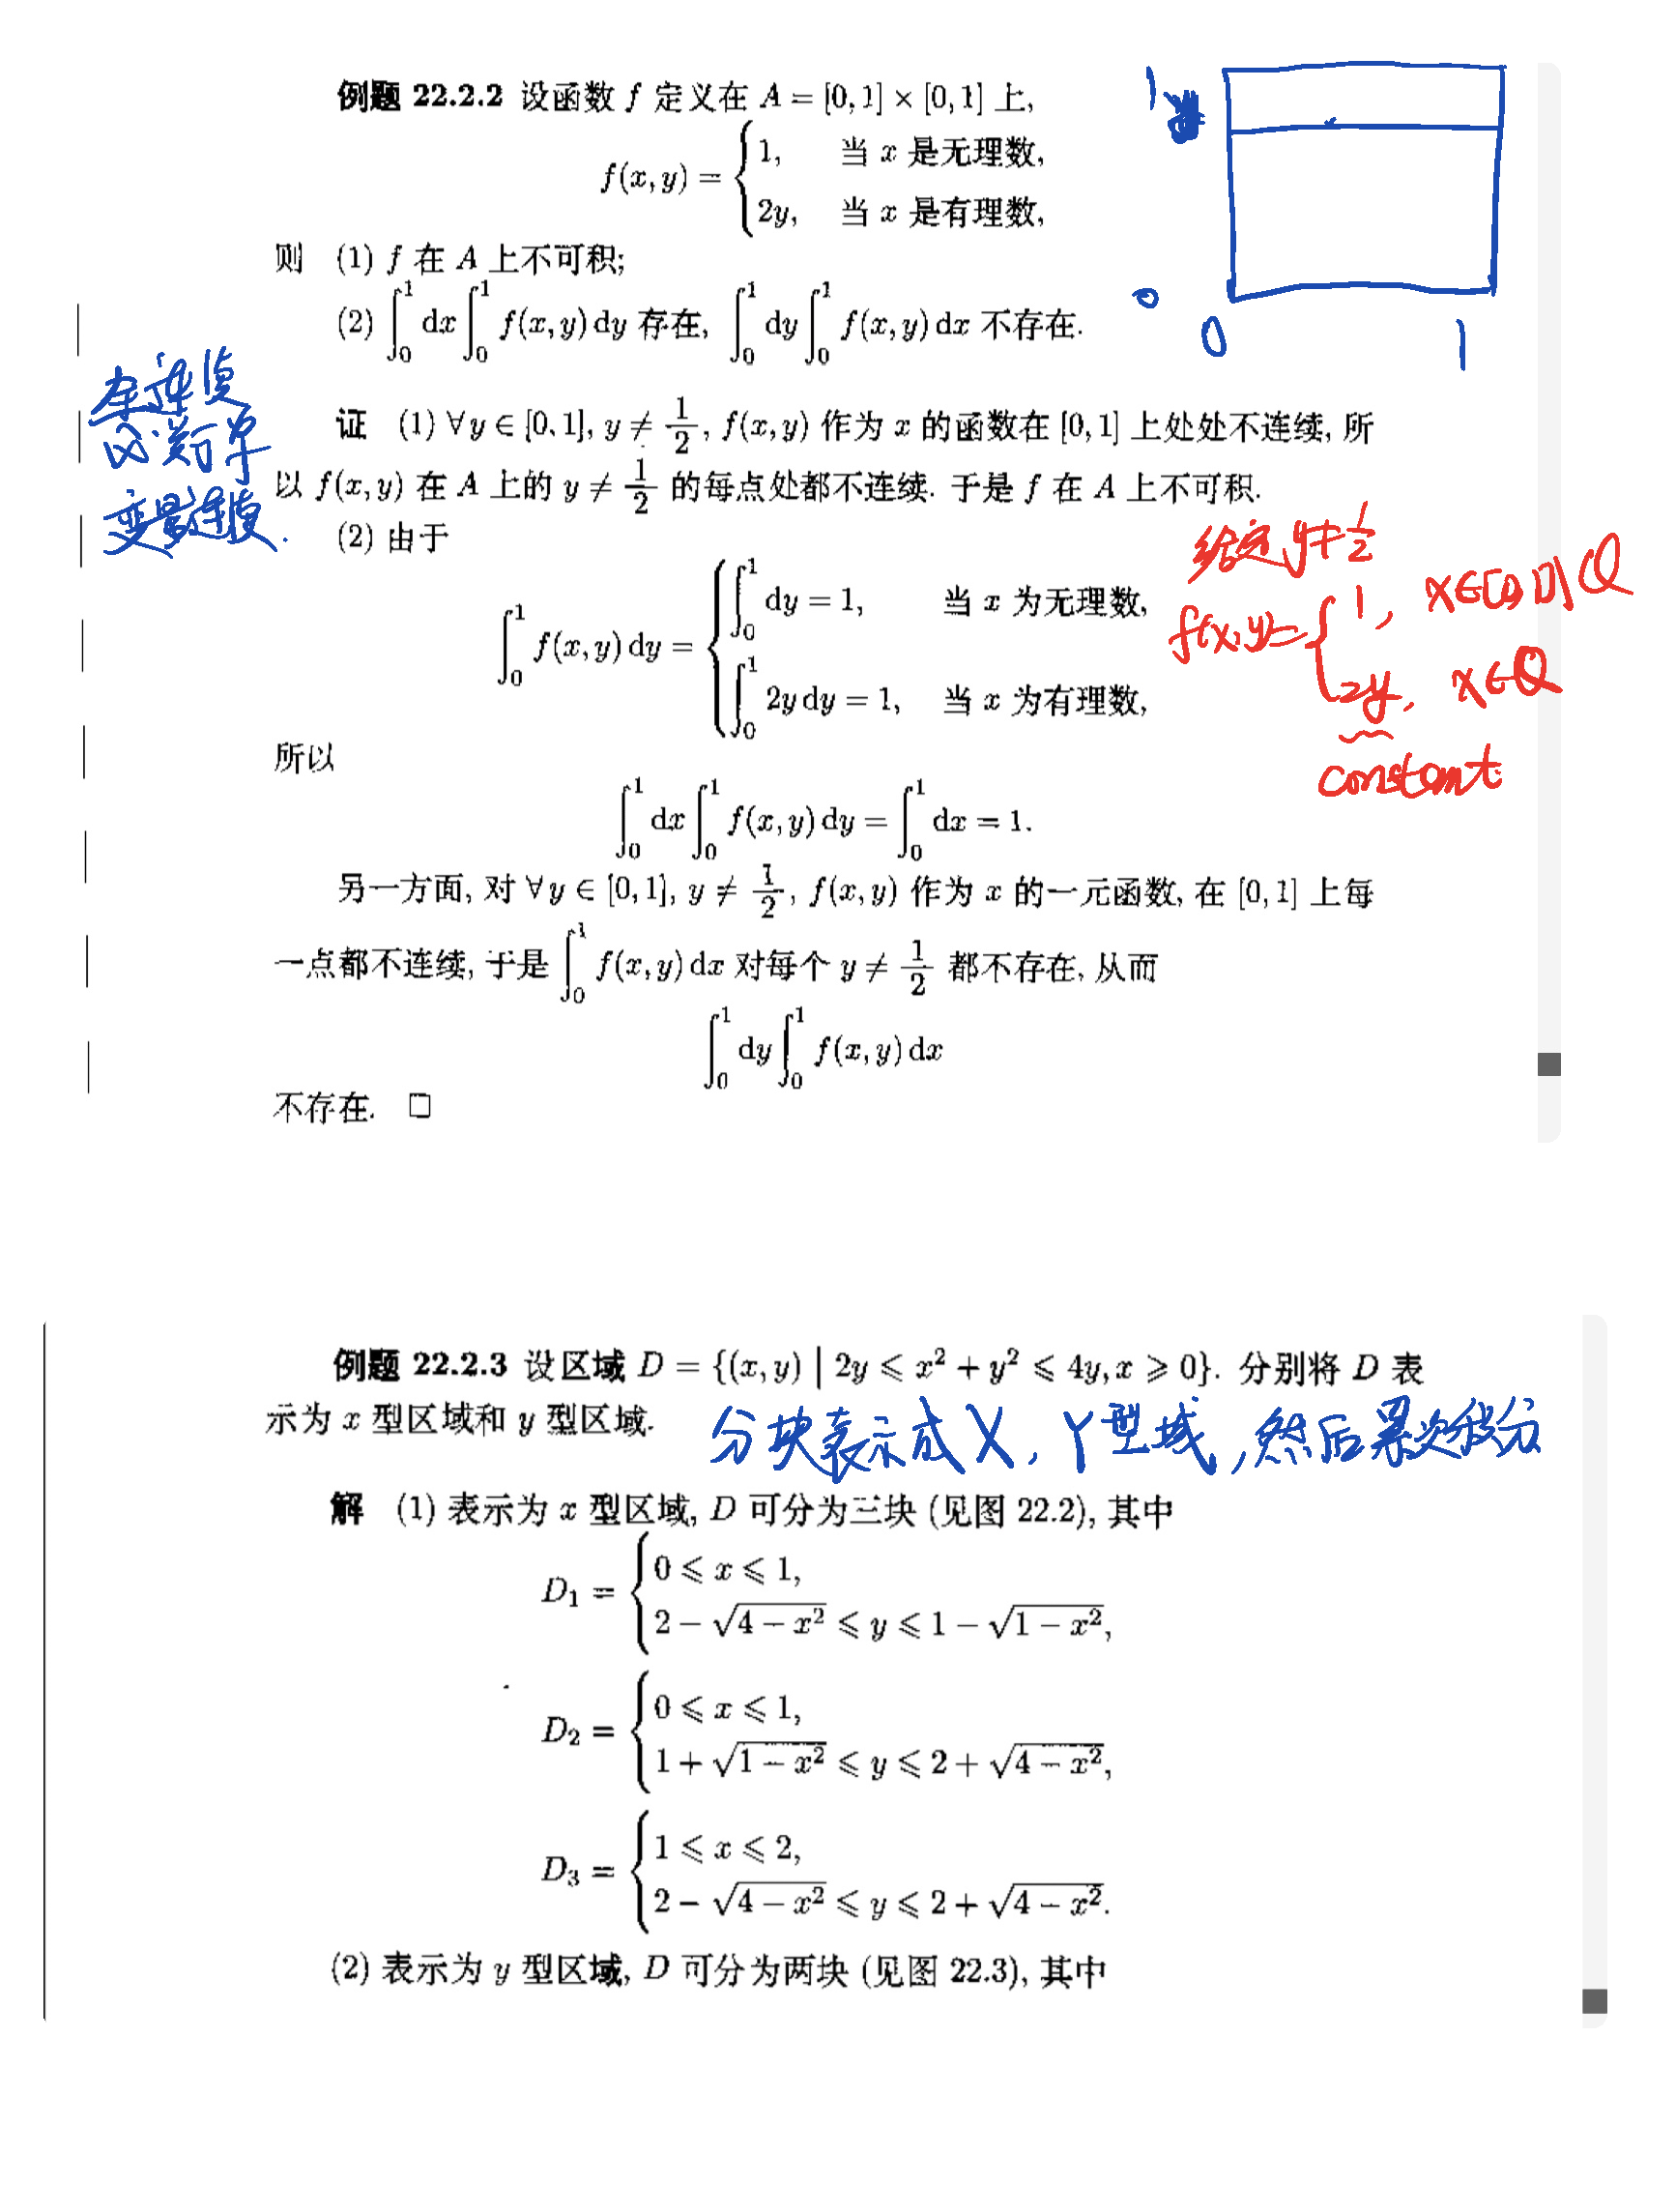 例题 22.2.2 设函数 f 定义在 A = [0,1] × [0,1] 上,
f(x,y) = { 1, 当 x 是无理数,
2y, 当 x 是有理数,
则 (1) f 在 A 上不可积;
(2) ∫₀¹ dx ∫₀¹ f(x,y) dy 存在, ∫₀¹ dy ∫₀¹ f(x,y) dx 不存在.
1
0
0 1
连续
变量连续.
证 (1) ∀y ∈ [0,1], y ≠ 1/2, f(x,y) 作为 x 的函数在 [0,1] 上处处不连续, 所
以 f(x,y) 在 A 上的 y ≠ 1/2 的每点处都不连续. 于是 f 在 A 上不可积.
(2) 由于
∫₀¹ f(x,y) dy = { ∫₀¹ dy = 1, 当 x 为无理数,
∫₀¹ 2y dy = 1, 当 x 为有理数,
给定 y≠1/2
f(x,y)= { 1, x∈[0,1]\Q
2y, x∈Q
constant
所以
∫₀¹ dx ∫₀¹ f(x,y) dy = ∫₀¹ dx = 1.
另一方面, 对 ∀y ∈ [0,1], y ≠ 1/2, f(x,y) 作为 x 的一元函数, 在 [0,1] 上每
一点都不连续, 于是 ∫₀¹ f(x,y) dx 对每个 y ≠ 1/2 都不存在, 从而
∫₀¹ dy ∫₀¹ f(x,y) dx
不存在. □
例题 22.2.3 设区域 D = {(x,y) | 2y ⩽ x² + y² ⩽ 4y, x ⩾ 0}. 分别将 D 表
示为 x 型区域和 y 型区域.
分块表示成X, Y型域, 然后累次积分
解 (1) 表示为 x 型区域, D 可分为三块 (见图 22.2), 其中
D₁ = { 0 ⩽ x ⩽ 1,
2 − √(4 − x²) ⩽ y ⩽ 1 − √(1 − x²),
D₂ = { 0 ⩽ x ⩽ 1,
1 + √(1 − x²) ⩽ y ⩽ 2 + √(4 − x²),
D₃ = { 1 ⩽ x ⩽ 2,
2 − √(4 − x²) ⩽ y ⩽ 2 + √(4 − x²).
(2) 表示为 y 型区域, D 可分为两块 (见图 22.3), 其中